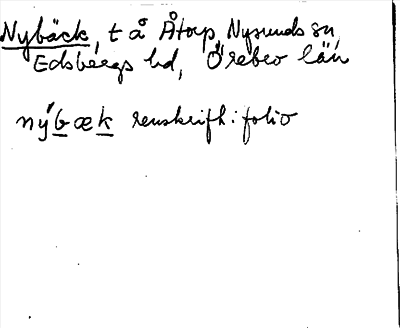 Nybäck, t å Åtorp, Nysunds sn,
Edsbergs hd, Örebro län
ny´bæk renskrift i folio